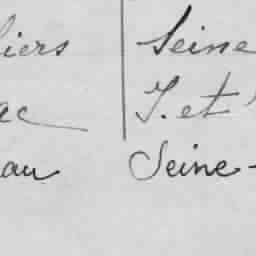 liers Seine
ac I. et
au Seine-